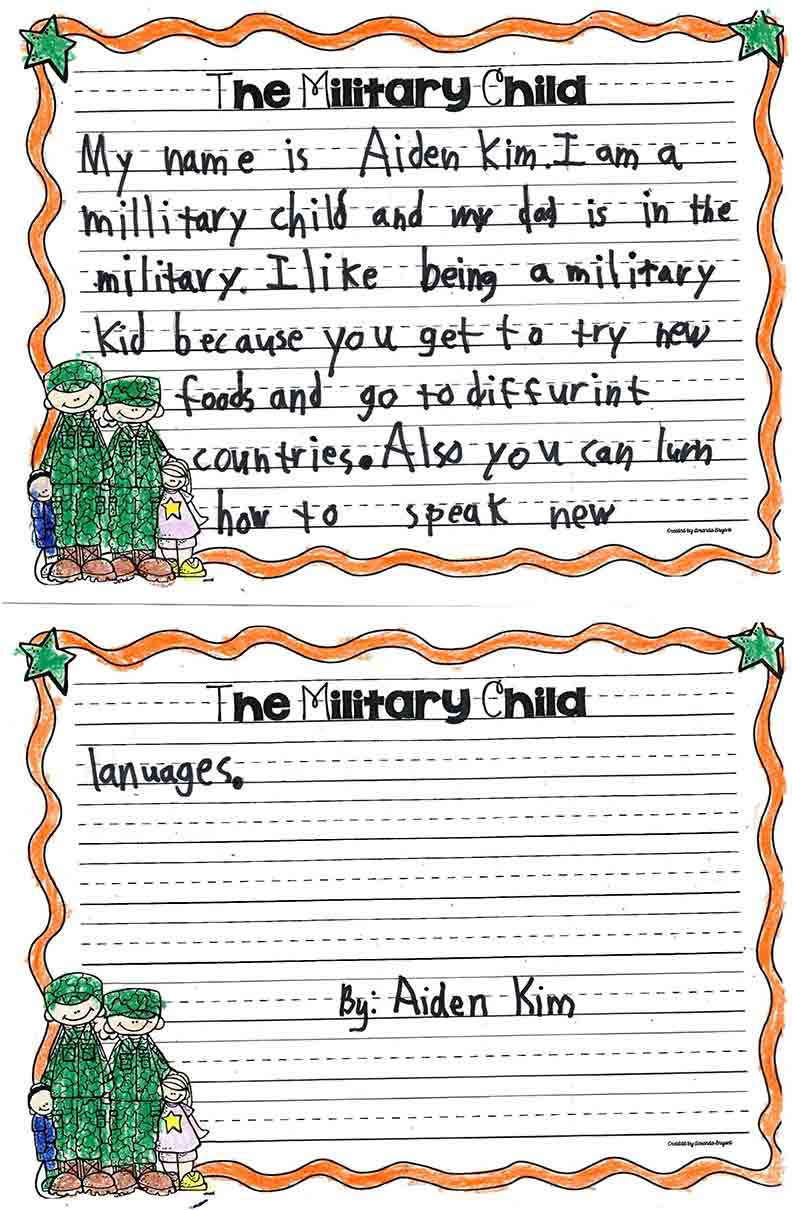 The Military Child
My name is Aiden Kim. I am a
millitary child and my dad is in the
military. I like being a military
kid because you get to try new
foods and go to diffurint
countries. Also you can lurn
how to speak new
Created by Amanda Bryant
The Military Child
lanuages.
By: Aiden Kim
Created by Amanda Bryant